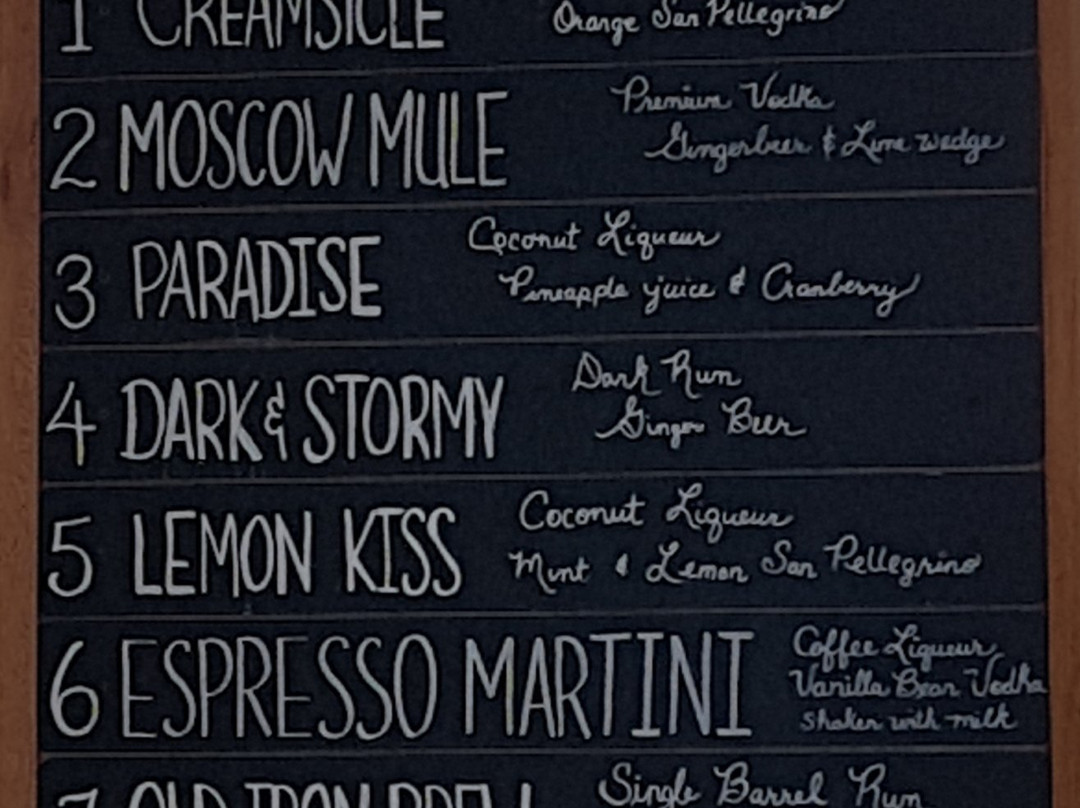 1 CREAMSICLE
Orange San Pellegrino
2 MOSCOW MULE
Premium Vodka
Gingerbeer & Lime wedge
3 PARADISE
Coconut Liqueur
Pineapple juice & Cranberry
4 DARK & STORMY
Dark Rum
Ginger Beer
5 LEMON KISS
Coconut Liqueur
Mint & Lemon San Pellegrino
6 ESPRESSO MARTINI
Coffee Liqueur
Vanilla Bean Vodka
shaken with milk
7 OLD IRON
Single Barrel Rum